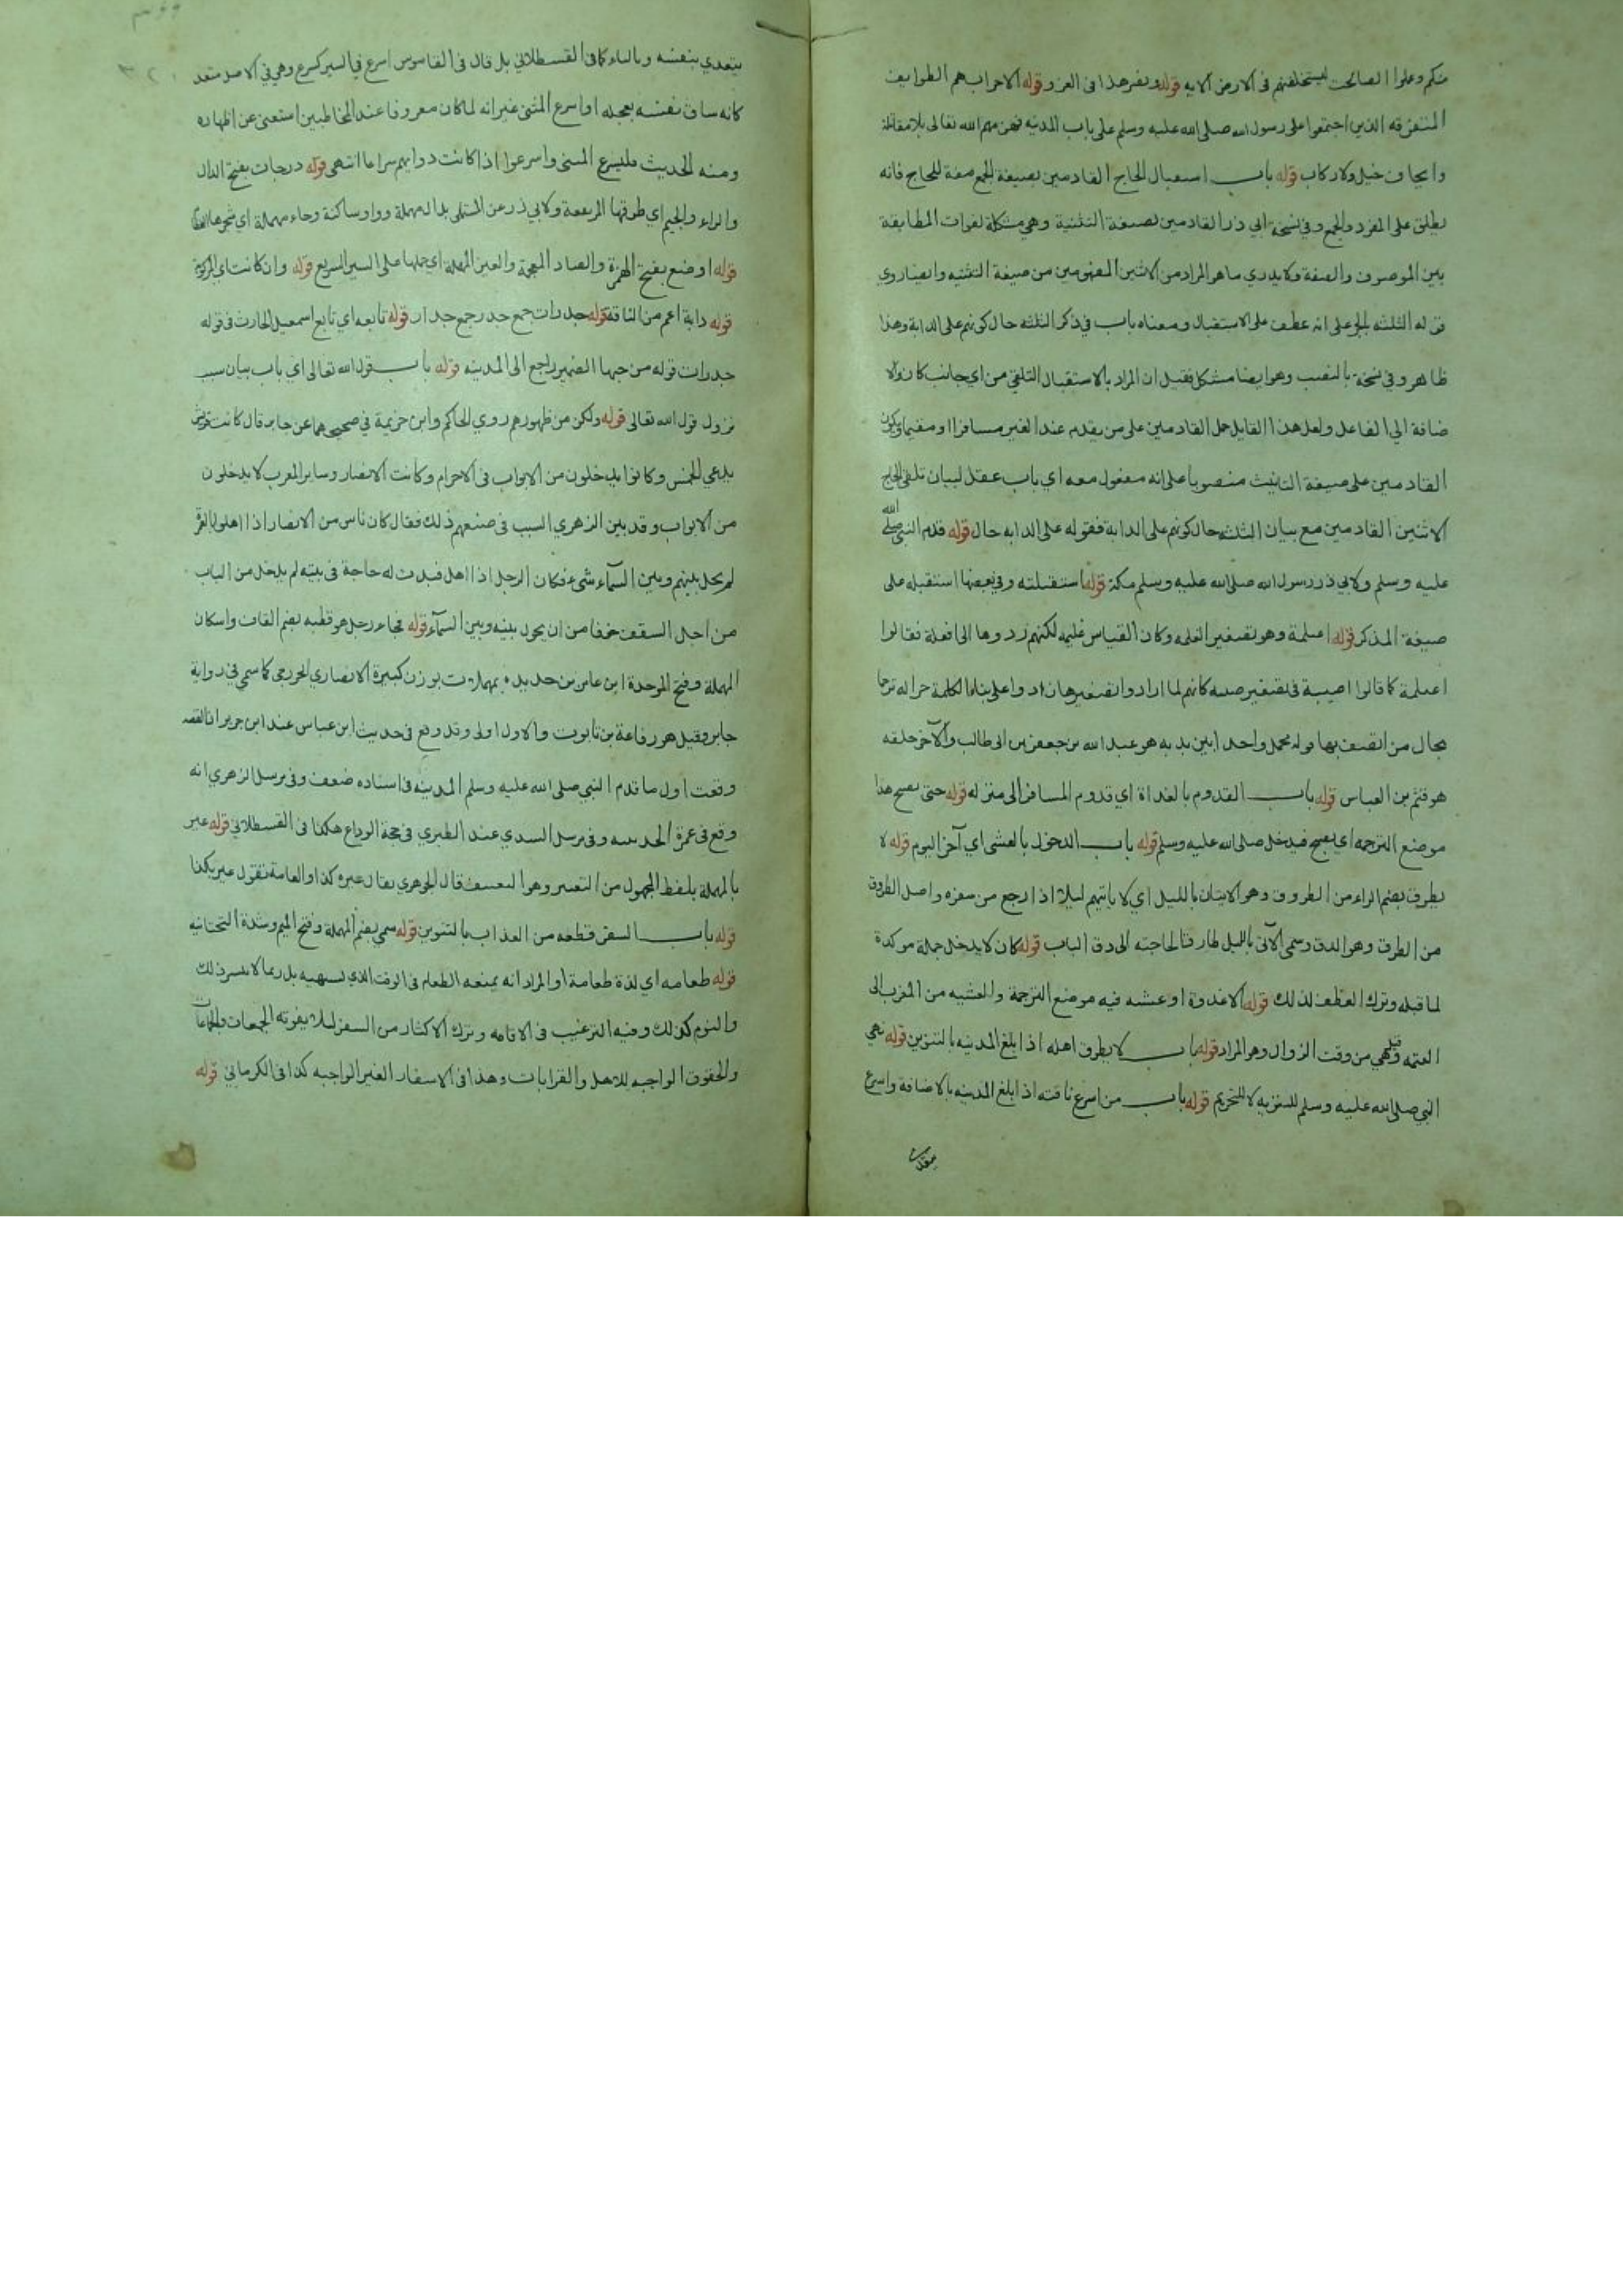 منكم وعلوا الصالحت ليستخلفنهم فى الارض الايه قوله ونصر هذا فى الغزو قوله الاحزاب هم الطوايف
المتفرقه الذين اجتمعوا على رسول الله صلى الله عليه وسلم على باب المدينه فهزمهم الله تعالى بلا مقاتلة
وايجاف خيل ولا ركاب قوله باب استقبال الحاج القادمين بصيغة الجمع صفة للحاج فانه
يطلق على المفرد والجمع وفي نسخة ابي ذر القادمين بصيغة التثنية وهي مشكلة لفوات المطابقة
بين الموصوف والصفة ولا يدري ما هو المراد من الاثنين المفهومين من صيغة التثنيه وايضا روي
قوله الثلثه بالجر على انه عطف على الاستقبال ومعناه باب في ذكر الثلثه حال كونهم على الدابة وهذا
ظاهر وفي نسخة بالنصب وهو ايضا مشكل فقيل ان المراد بالاستقبال التلقي من اي جانب كان ولا
ضافة الي الفاعل ولعل هذا القايل حمل القادمين على من يقدم عند الغير مسافرا او مقيما
القادمين على صيغة التانيث منصوبا على انه مفعول معه اي باب عقل لبيان تلقي الحاج
الاثنين القادمين مع بيان الثلثه حال كونهم على الدابة فقوله على الدابه حال قوله قدم النبي صلى الله
عليه وسلم ولابي ذر رسول الله صلى الله عليه وسلم مكة قوله استقبلته وفي بعضها استقبله على
صيغة المذكر قوله اغيلمة وهو تصغير الغلمه وكان القياس غليمه لكنهم ردوها الى افعلة فقالوا
اغيلمة كما قالوا اصيبية في تصغير صبيه كانهم لما ارادوا تصغيرها
بحال من اتصف بها قوله فحمل واحدا بين يديه هو عبد الله بن جعفر بن ابى طالب والآخر خلفه
هو قثم بن العباس قوله باب القدوم بالغداة اي قدوم المسافر الى منزله قوله حتى يصبح هذا
موضع الترجمه اي يصبح فيدخل صلى الله عليه وسلم قوله باب الدخول بالعشى اي آخر اليوم قوله لا
يطرق بضم الراء من الطروق وهو الاتيان بالليل اي لا ياتيهم ليلا اذا رجع من سفره واصل الطروق
من الطرق وهو الدق وسمى الآتى بالليل طارقا لحاجته الى دق الباب قوله كان لا يدخل جملة موكدة
لما قبله وترك العطف لذلك قوله الا غدوة او عشيه فيه موضع الترجمة والعشيه من المغرب الى
العتمه وقيل هي من وقت الزوال وهو المراد قوله باب لا يطرق اهله اذا بلغ المدينه بالتنوين قوله نهى
النبي صلى الله عليه وسلم للتنزيه لا للتحريم قوله باب من اسرع ناقته اذا بلغ المدينه بالاضافة واسرع
يتعدي بنفسه وبالباء كما فى القسطلانى بل قال فى القاموس اسرع في السير كسرع وهي في الاصل متعد
كانه ساق نفسه بعجله او اسرع المشى غير انه لما كان معروفا عند المخاطبين استغنى عن اظهاره
ومنه الحديث فليسرع المشى واسرعوا اذا كانت دوابهم سراعا انتهى قوله درجات بفتح الدال
والراء والجيم اي طرقها المرتفعة ولابي ذر عن المستملى بدال مهملة وواو ساكنة وحاء مهملة اي شجرها العظام
قوله اوضع بفتح الهمزة والضاد المعجمة والعين المهملة اي حملها على السير السريع قوله وان كانت اي المركوبة
قوله دابة اعم من الناقة قوله جدرات جمع جدر جمع جدار قوله تابعه اي تابع اسمعيل الحارث فى قوله
جدرات قوله من حبها الضمير راجع الى المدينه قوله باب قول الله تعالى اي باب بيان سبب
نزول قول الله تعالى قوله ولكن من ظهورهم روي الحاكم وابن خزيمة في صحيحيهما عن جابر قال كانت قريش
يدعي الحمس وكانوا يدخلون من الابواب فى الاحرام وكانت الانصار وساير العرب لا يدخلون
من الابواب وقد بين الزهري السبب فى صنيعهم ذلك فقال كان ناس من الانصار اذا اهلوا بالعمرة
لم يحل بينهم وبين السمآء شىء فكان الرجل اذا اهل فبدت له حاجة فى بيته لم يدخل من الباب
من اجل السقف خوفا من ان يحول بينه وبين السمآء قوله فجاء رجل هو قطبه بضم القاف واسكان
المهملة وفتح الموحدة ابن عامر بن حديدة بمهملات بوزن كبيرة الانصاري الخزرجى كما سمي في رواية
جابر وقيل هو رفاعة بن تابوت والاول اولى وقد وقع فى حديث ابن عباس عند ابن جرير ان القصه
وقعت اول ما قدم النبي صلى الله عليه وسلم المدينه فى اسناده ضعف وفى مرسل الزهري انه
وقع فى عمرة الحديبيه وفى مرسل السدي عند الطبري فى حجة الوداع هكذا فى القسطلاني قوله عير
بالمهملة بلفظ المجهول من التعيير وهو التعنيف قال الجوهري يقال عيره كذا والعامة تقول عيره بكذا
قوله باب السفر قطعه من العذاب بالتنوين قوله سمي بضم المهملة وفتح الميم وشدة التحتانيه
قوله طعامه اي لذة طعامه او المراد انه يمنعه الطعام فى الوقت الذي يشتهيه بل ربما لا يتيسر ذلك
والنوم كذلك وفيه الترغيب فى الاقامه وترك الاكثار من السفر ليلا يفوته الجمعات والجماعات
والحقوق الواجبه للاهل والقرابات وهذا فى الاسفار الغير الواجبه كذا فى الكرماني قوله